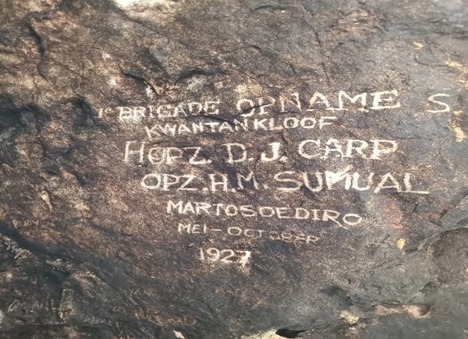 1e BRIGADE OPNAME S
KWANTANKLOOF
HOPZ. D.J. CARP
OPZ. H.M. SUMUAL
MARTOSOEDIRO
MEI-OCTOBER
1927